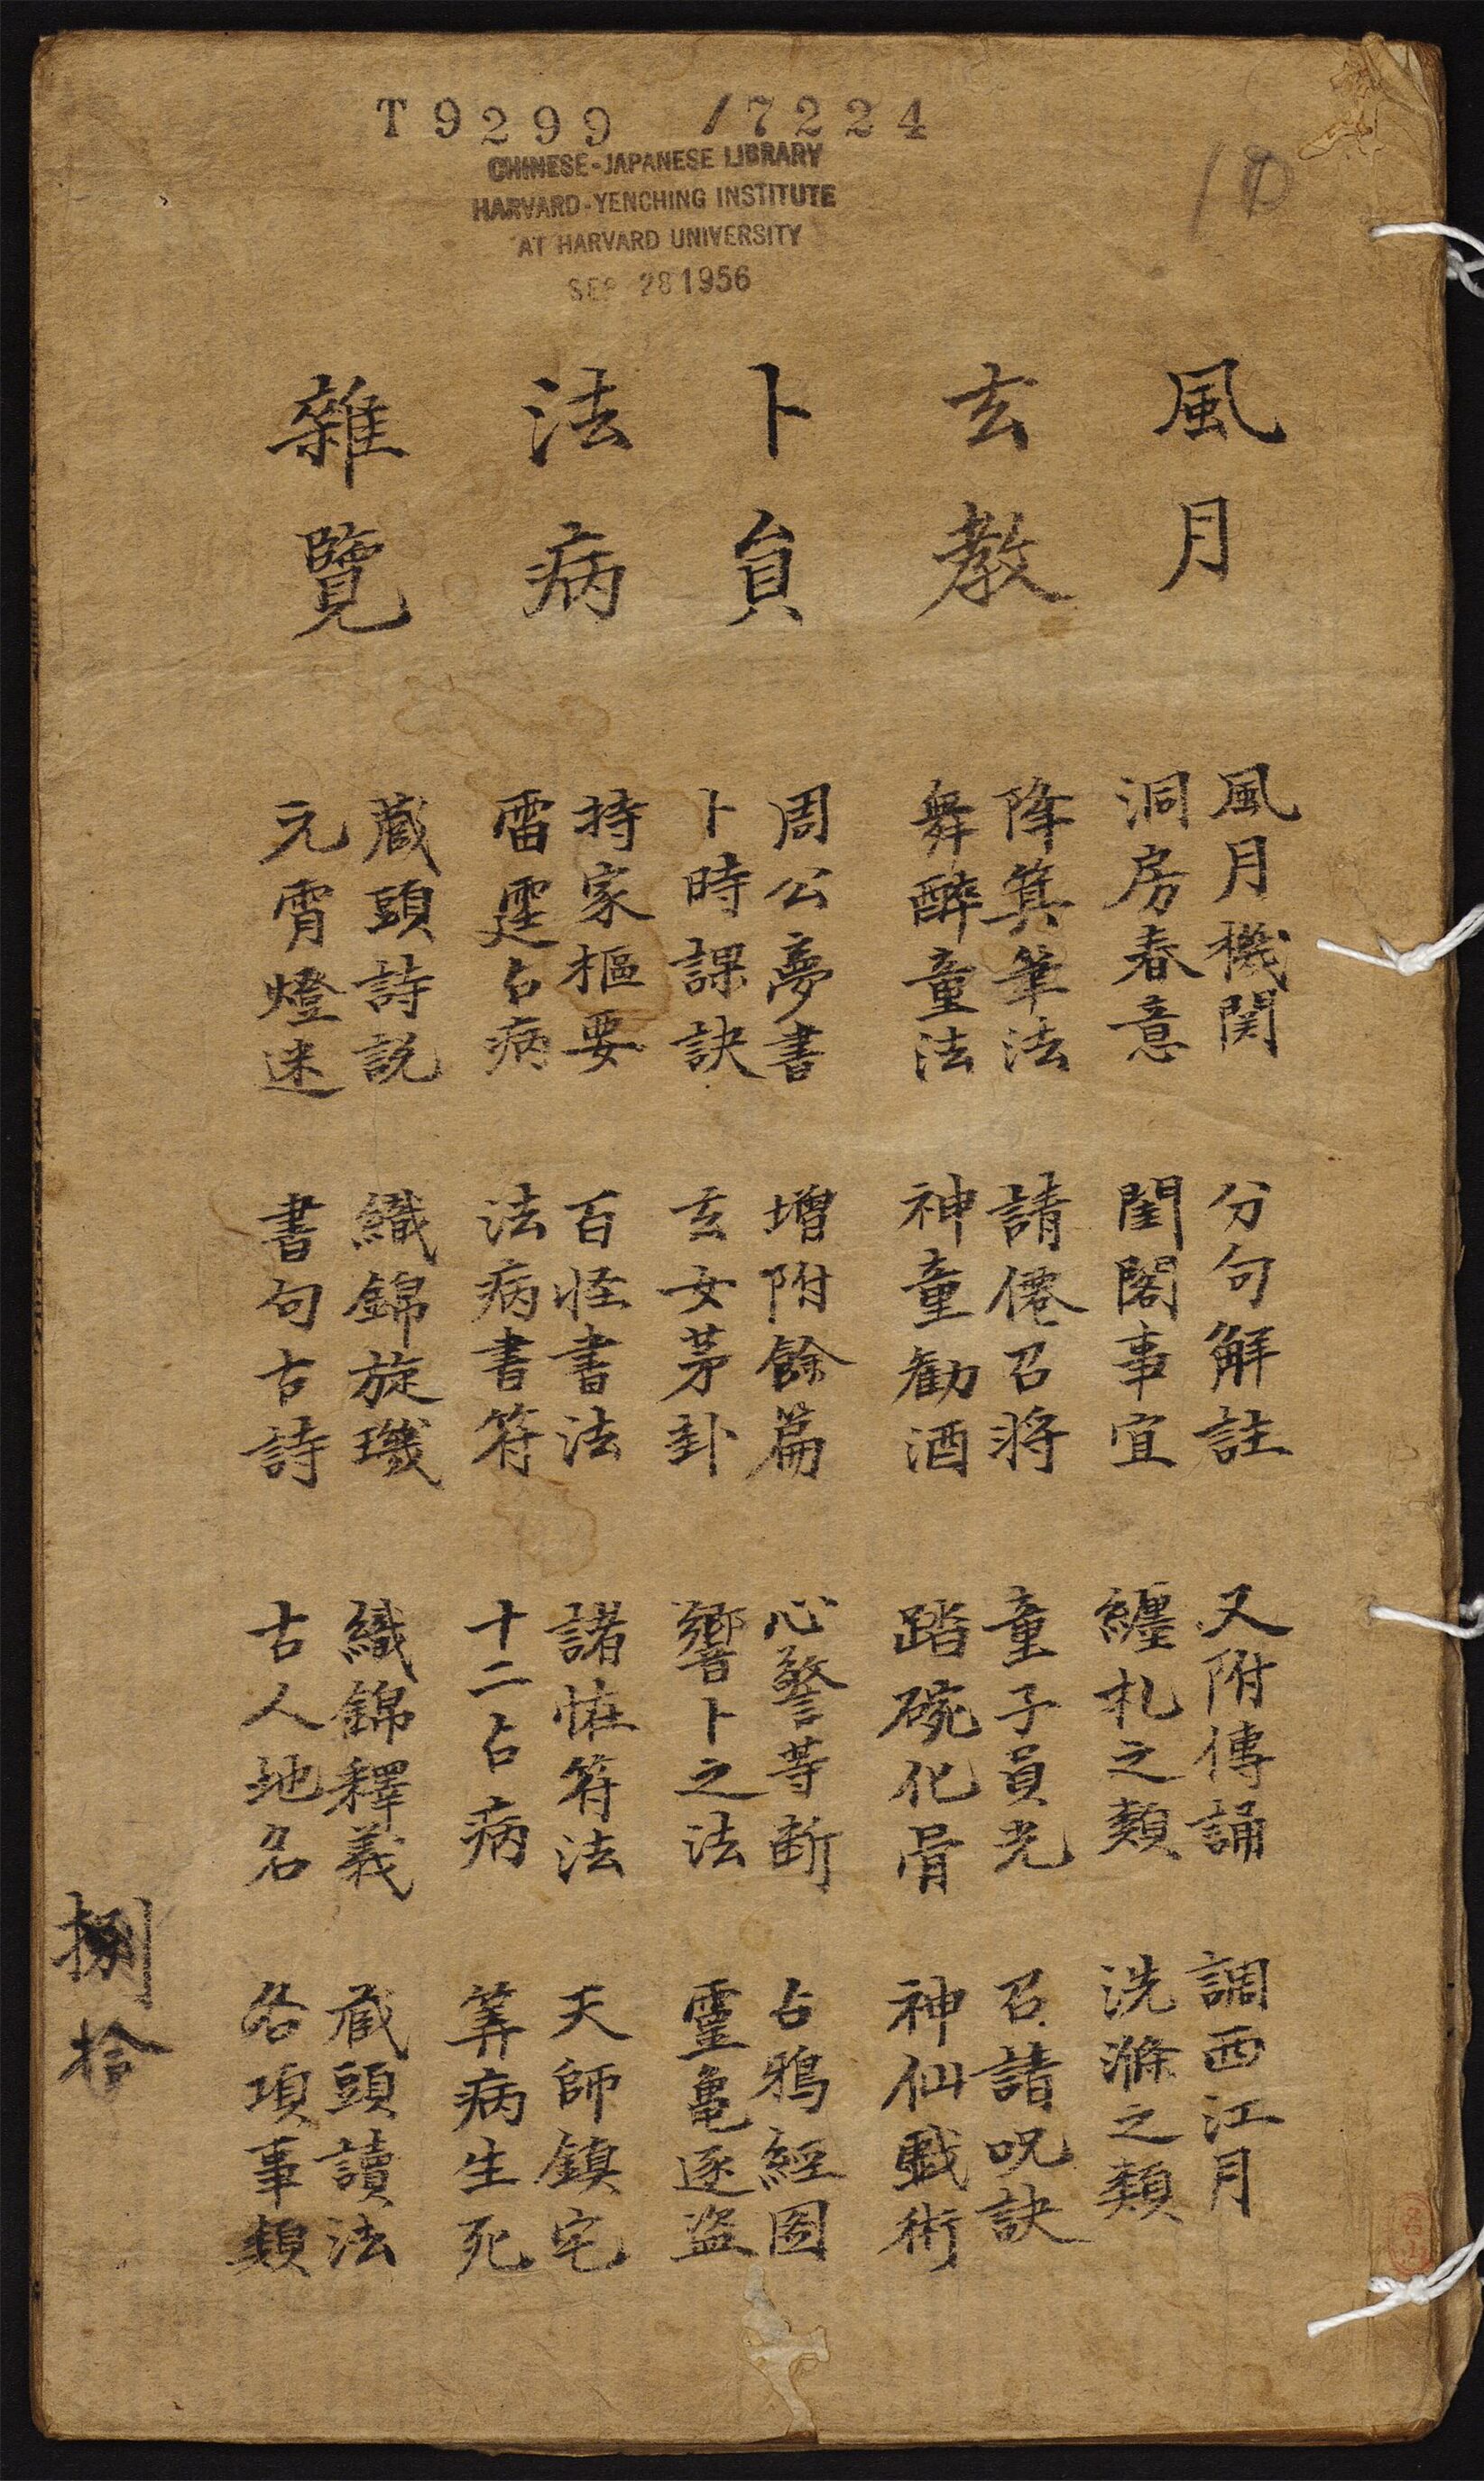 T 9299 /7224
CHINESE-JAPANESE LIBRARY
HARVARD-YENCHING INSTITUTE
AT HARVARD UNIVERSITY
SEP 28 1956
10
風月
風月機関 分句解註 又附傳誦 調西江月
洞房春意 閨閣事宜 纏札之類 洗滌之類
玄教
降箕筆法 請僊召將 童子員光 召請呪訣
舞醉童法 神童勧酒 踏碗化骨 神仙戱術
卜貟
周公夢書 增附餘篇 心警等断 占鴉經圖
卜時課訣 玄女茅卦 響卜之法 靈亀逐盜
法病
持家樞要 百怪書法 諸恠符法 天師鎮宅
雷霆占病 法病書符 十二占病 筭病生死
雜覽
蔵頭詩説 織錦旋璣 織錦釋義 蔵頭讀法
元霄燈迷 書句古詩 古人地名 各項事類
捌拾